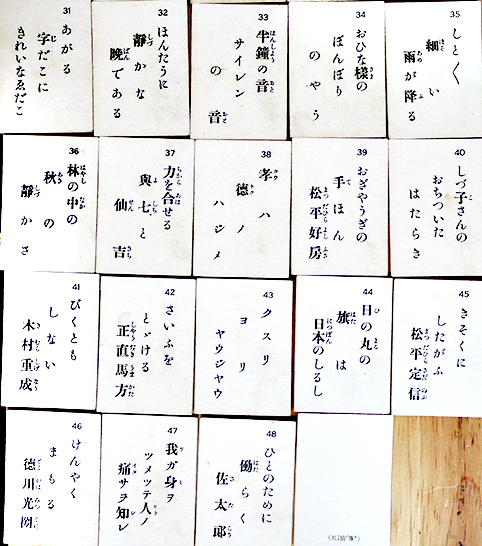 31
あがる
字だこに
きれいなゑだこ
32
ほんたうに
靜かな
晩である
33
半鐘の音
サイレン
の音
34
おひな様の
ぼんぼり
のやう
35
しと〱
細い
雨が降る
36
林の中の
秋の
靜かさ
37
力を合せる
與七と
仙吉
38
孝ハ
德ノ
ハジメ
39
おぎやうぎの
手ほん
松平好房
40
しづ子さんの
おちついた
はたらき
41
びくとも
しない
木村重成
42
さいふを
とゞける
正直馬方
43
クスリ
ヨリ
ヤウジヤウ
44
日の丸の
旗は
日本のしるし
45
きそくに
したがふ
松平定信
46
けんやく
まもる
德川光圀
47
我ガ身ヲ
ツメツテ人ノ
痛サヲ知レ
48
ひとのために
働らく
佐太郎